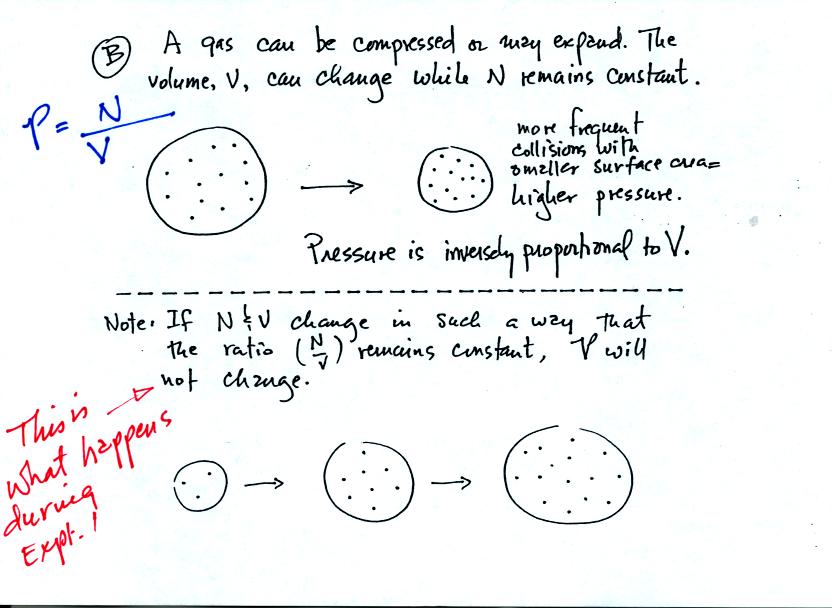 B A gas can be compressed or may expand. The
volume, V, can change while N remains constant.
P = N/V
more frequent
collisions with
smaller surface area =
higher pressure.
Pressure is inversely proportional to V.
Note: If N & V change in such a way that
the ratio (N/V) remains constant, P will
not change.
This is
what happens
during
Expt.!